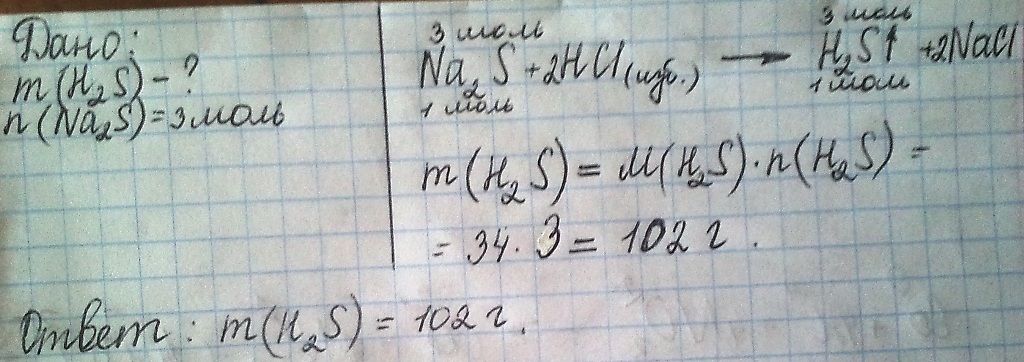 Дано:
m(H₂S) - ?
n(Na₂S) = 3 моль
3 моль 3 моль
Na₂S + 2HCl (изб.) → H₂S↑ + 2NaCl
1 моль 1 моль
m(H₂S) = M(H₂S) · n(H₂S) =
= 34 · 3 = 102 г.
Ответ: m(H₂S) = 102 г.